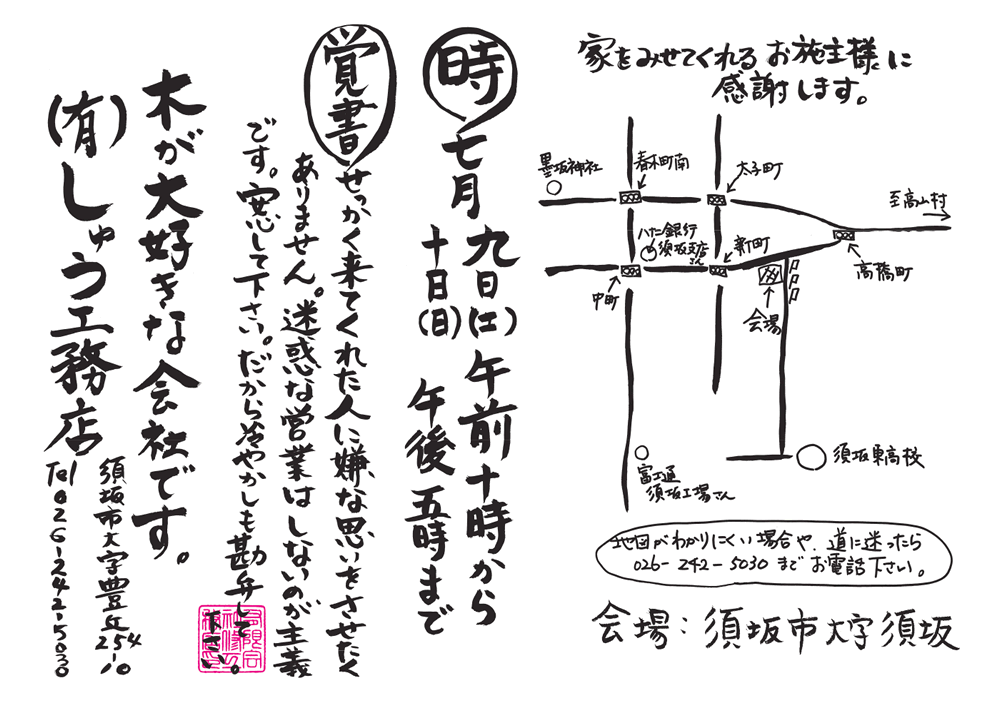 家をみせてくれるお施主様に
感謝します。
墨坂神社
春木町南
太子町
至高山村
八十二銀行
須坂支店
さん
新町
高橋町
中町
会場
須坂東高校
富士通
須坂工場さん
地図がわかりにくい場合や、道に迷ったら
026-242-5030までお電話下さい。
会場:須坂市大字須坂
時
七月九日(土)午前十時から
十日(日)午後五時まで
覚書
せっかく来てくれた人に嫌な思いをさせたく
ありません。迷惑な営業はしないのが主義
です。安心して下さい。だから冷やかしも勘弁して
下さい。
木が大好きな会社です。
(有)しゅう工務店
須坂市大字豊丘254-10
Tel 026-242-5030